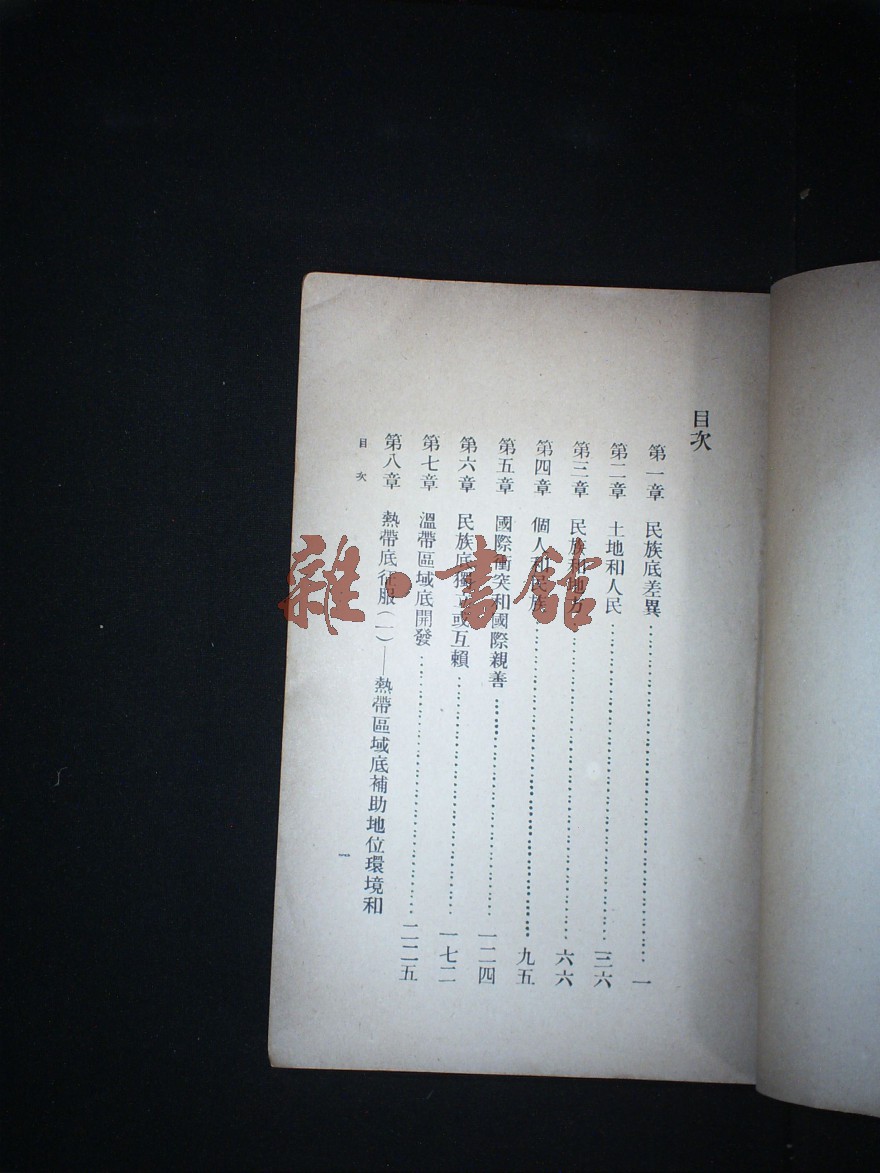 目次
第一章　民族底差異……………一
第二章　土地和人民……………三六
第三章　民族和地方……………六六
第四章　個人和民族……………九五
第五章　國際衝突和國際親善……………一二四
第六章　民族底獨立或互賴……………一七二
第七章　溫帶區域底開發……………二二五
第八章　熱帶底征服(一)——熱帶區域底補助地位環境和
目次
一
雜·書館